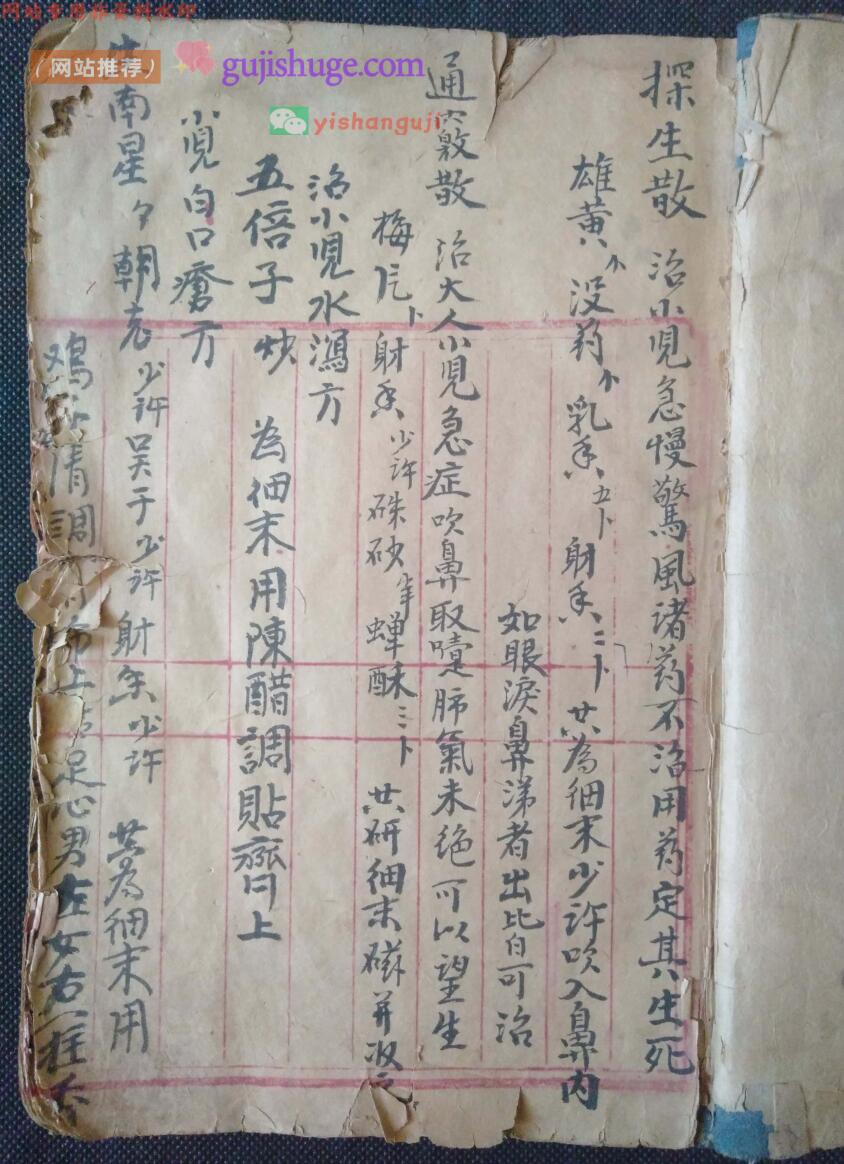 网站专用非资料水印
（网站推荐）
gujishuge.com
yishanguji
探生散 治小児急慢驚風诸药不治用药定其生死
雄黄 没药 乳香 五卜 射香 二卜 共為细末少许吹入鼻内
如眼淚鼻涕者出比白可治
通竅散 治大人小児急症吹鼻取嚏肺氣未绝可以望生
梅片 卜 射香少许硃砂 蝉酥 三卜 共研细末磁并收之
治小児水瀉方
五倍子炒 為细末用陳醋調貼齊上
小児白口瘡方
南星 朝 少许吴于少许射香少许 共為细末用
鸡 清調 上 足心男左女右一柱香